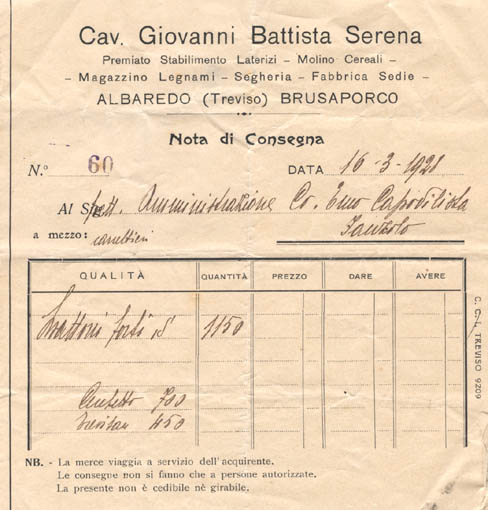 Cav. Giovanni Battista Serena
Premiato Stabilimento Laterizi – Molino Cereali –
– Magazzino Legnami – Segheria – Fabbrica Sedie –
ALBAREDO (Treviso) BRUSAPORCO
Nota di Consegna
N.° 60 DATA 16-3-1921
Al Spett. Amministrazione Co. Emo Capodilista
a mezzo: Fanzolo
QUALITÀ QUANTITÀ PREZZO DARE AVERE
forti 1150
700
450
NB. - La merce viaggia a servizio dell'acquirente.
Le consegne non si fanno che a persone autorizzate.
La presente non è cedibile nè girabile.
C. C. I. TREVISO 9209